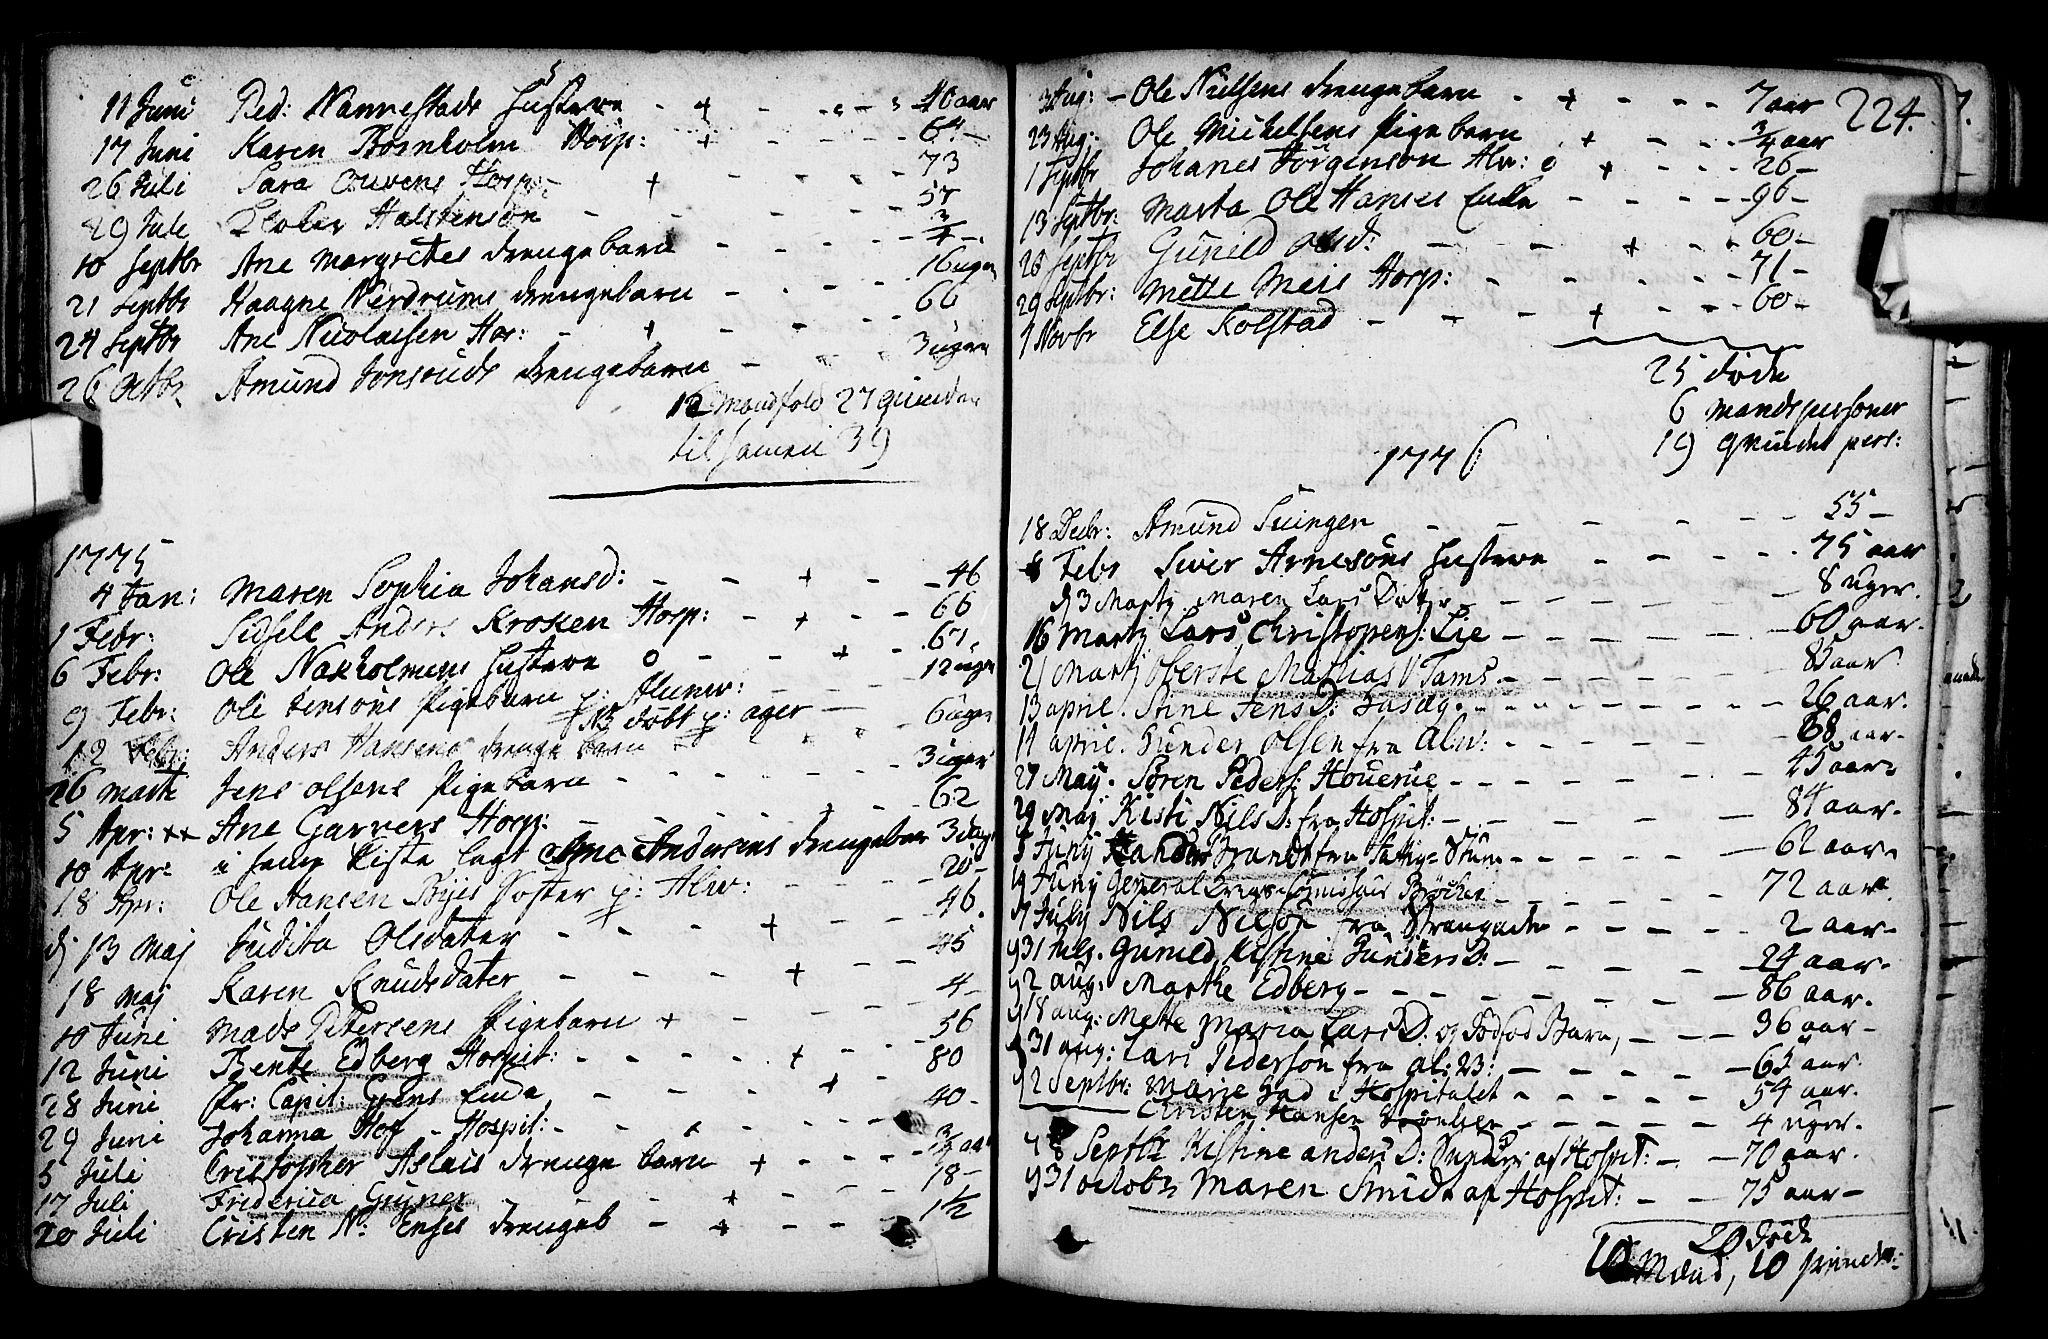 11 Juni Ped: Nannestads Hustrue - + - - - 40 aar
17 Juni Karen Bornholm Horp: + - - - 64 -
26 Juli Sara Ouvens Horp: - + - - - 73
29 Jule Halstensøn - - - - 57
10 Septbr Ane Margretes drengebarn - - - 3/4 -
21 Septbr Haagne Nerdrums drengebarn - - - 16 uger
24 Septbr Ane Nicolaisen Hor: - + - - - 66
26 Octbr Amund Jonsruds drengebarn - - - 3 uger
12 Mandfold 27 quinder
tilsamen 39
1775
4 Jan: Maren Sophia Johansd: - - + - - 46
1 Febr: Sidsele Anders Kroken Horp: - + - - 66
6 Febr: Ole Nakholmens Hustrue o - - + - 67
9 Febr: Ole Jensøns Pigebarn p: Alunv: - - - 12 uger
12 Febr: Anders Hansens drenge barn NB døbt p: ager - 6 uger
26 Marti Jens Olsens Pigebarn - - - - 3 uger
5 Apr: ++ Ane Garvers Horp: - - - - 62
10 Apr: i samme Kiste lagt Ane Andersens drengebarn 3 dage
18 Apr: Ole Hansen Poster p: Alw: - - - - 20 -
d 13 Maj Judita Olsdater - - - + - - 46.
18 Maj Karen Knudsdater - - - + - - 45
10 Juni Mads Petersens Pigebarn + - - - 4 -
12 Juni Bente Edberg Hospit: - - - + - - 56
28 Juni Fr: Capit: Grens Enke - - - + - 80
29 Juni Johanna Hof - Hospit: - - - - 40 -
5 Juli Cristopher Aslais drenge barn + - - - 3/4 aar
17 Juli Friderica Gruner - - + - - 18 -
20 Juli Cristen N: Enses drengeb - + - - 1 1/2
224.
3 Aug: - Ole Nielsens drengebarn - + - - - 7 aar
23 Aug: Ole Michelsens Pigebarn - + - - 3/4 aar
1 Septbr Johanes Jørgenson Alw: o + - - - 26 -
13 Septbr: Marta Ole Hanses Enke - - - - 96 -
26 Septbr Guneld Olsd: - - - + - - 60 -
29 Septbr: Mette Meis Horp: - - - - - 71 -
7 Novbr Else Kolstad - - - + - - 60 -
25 døde
6 mandspersoner
19 qvindes pers:
1776
18 Decbr: Amund Svingen - - - - - 55 -
8 Febr Siver Arnesøns Hustrue - - - - 75 aar
d 3 Martj Maren Lars Dater - - - - 8 uger.
16 Martj Lars Christophers: Lie - - - - 60 aar.
21 Martj Oberste Mathias V Tams. - - - - 85 aar.
13 april. Stine Jens D: - - - - 26 aar.
14 april. Gunder Olsen fra Alw: - - - 68 aar.
27 May. Søren Peders: Houerue - - - - 45 aar.
29 May Kisti Nils D: fra Hospit: - - - - 84 aar.
5 Juny Brandt fra Fattig-Stuen - - - - 62 aar.
14 Juny General Krigs-Commissair Bröcker - - - - 72 aar
d 7 July Nils Nilsøn fra Strangade - - - - 2 aar.
d 31 July. Guneld Kistine Gunders D: - - - - 24 aar.
d 2 aug: Marthe Edberg - - - - - 86 aar.
d 18 aug: Mette Maria Lars D: og Dødfød Barn, - - - 36 aar -
d 31 aug: Lars Pederson fra al: 23: - - - - 65 aar.
d 2 Septbr: Marie Gad i Hospitalet - - - - 54 aar.
Christen Hansen - - - - 4 uger.
d 8 Septbr Kistine anders D: af Hospit: - - 70 aar.
d 31 octobr Maren Smidt af Hospit: - - 75 aar -
20 døde
10 Mænd, 10 qvinder: